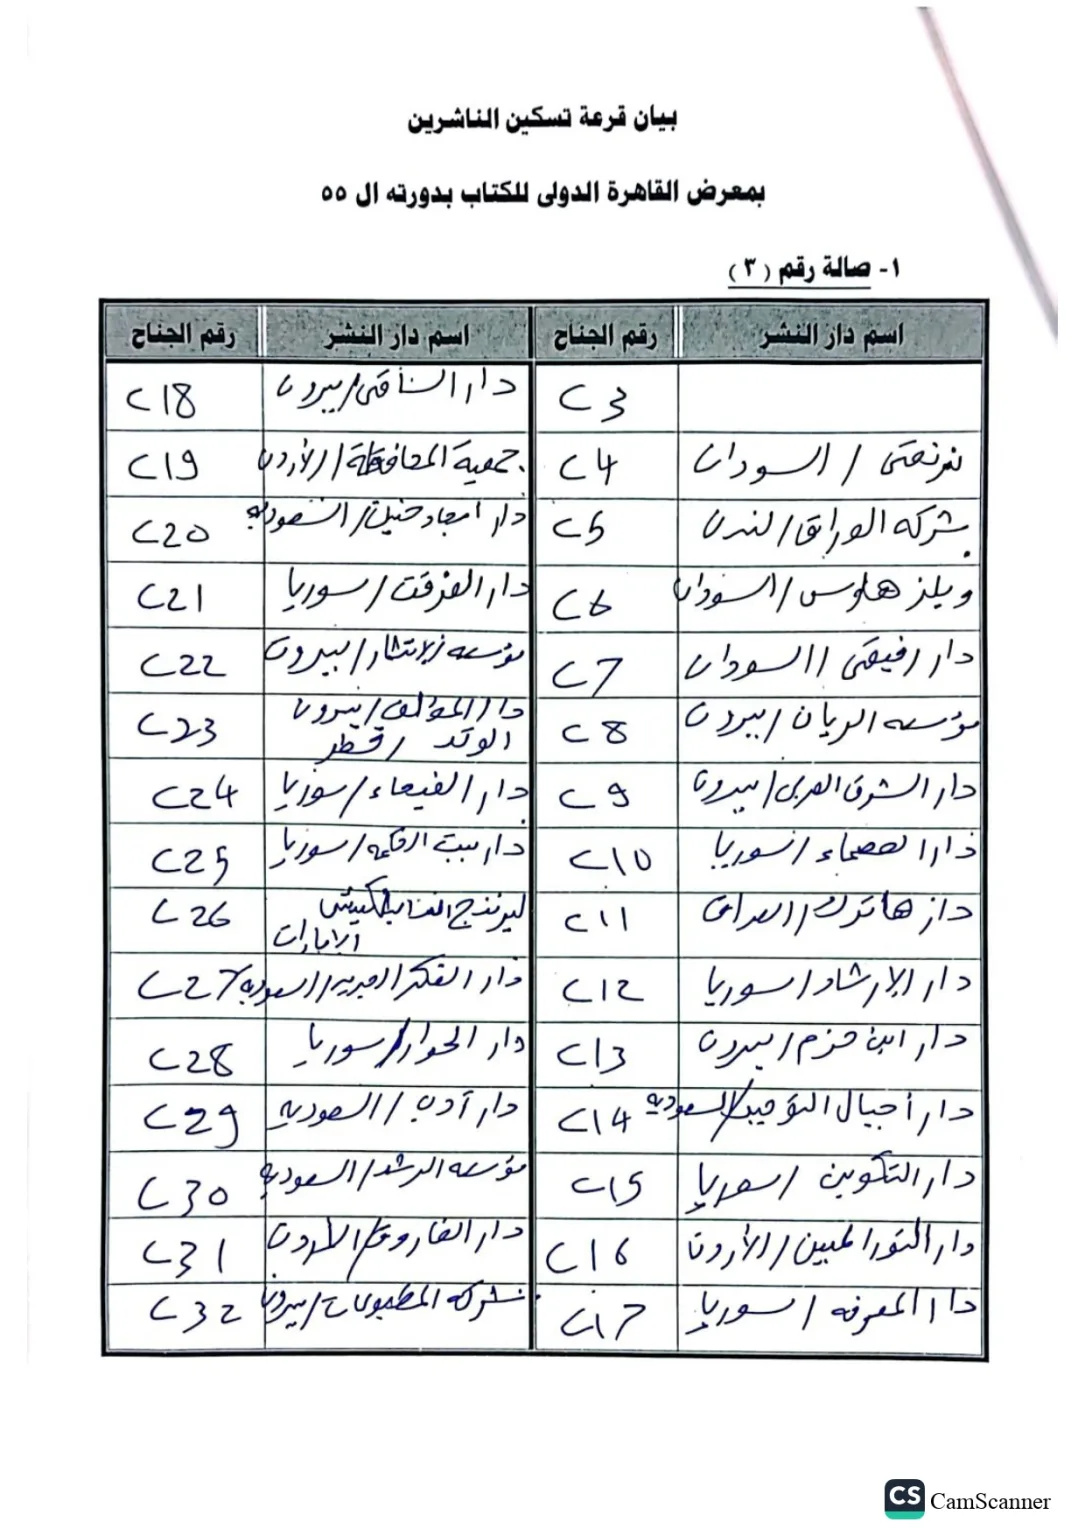 بيان قرعة تسكين الناشرين
بمعرض القاهرة الدولى للكتاب بدورته ال ٥٥
١- صالة رقم ( ٣ )
اسم دار النشر رقم الجناح اسم دار النشر رقم الجناح
C3 دار الساقى/بيروت C18
السودان / C4 جمعية المحافظة/الأردن C19
شركه الوراق/لندن C5 دار امجاد حنين/السعوديه C20
ويلز هاوس/السودان C6 دار الفرقد/سوريا C21
دار رفيقى/السودان C7 مؤسسه الانتشار/بيروت C22
مؤسسه الريان/بيروت C8 دار المؤلف/بيروت
الوتد / قطر C23
دار الشرق العربى/بيروت C9 دار الفيحاء/سوريا C24
دار العصماء/سوريا C10 دار بيت الحكمه/سوريا C25
دار C11 الامارات C26
دار الارشاد/سوريا C12 دار الفكر/السعوديه C27
دار ابن حزم/بيروت C13 دار الحوار/سوريا C28
دار أجيال التوحيد/السعوديه C14 دار أدب/السعوديه C29
دار التكوين/سوريا C15 مؤسسه الرشد/السعوديه C30
دار النور المبين/الأردن C16 دار الفاروق/الاردن C31
دار المعرفه/سوريا C17 شركه المطبوعات/بيروت C32
CS CamScanner